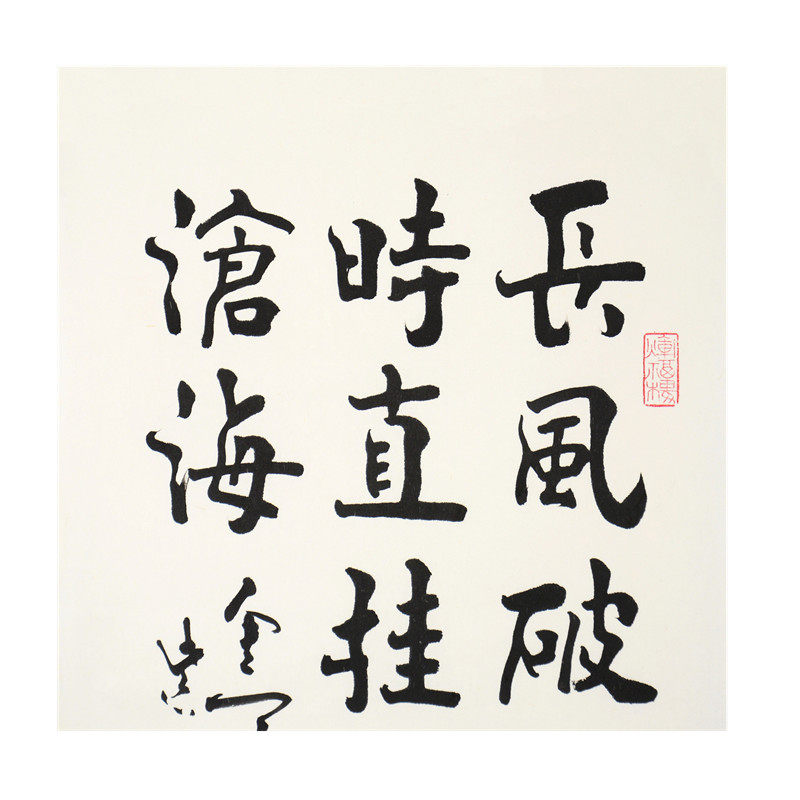 長風破
時直挂
滄海